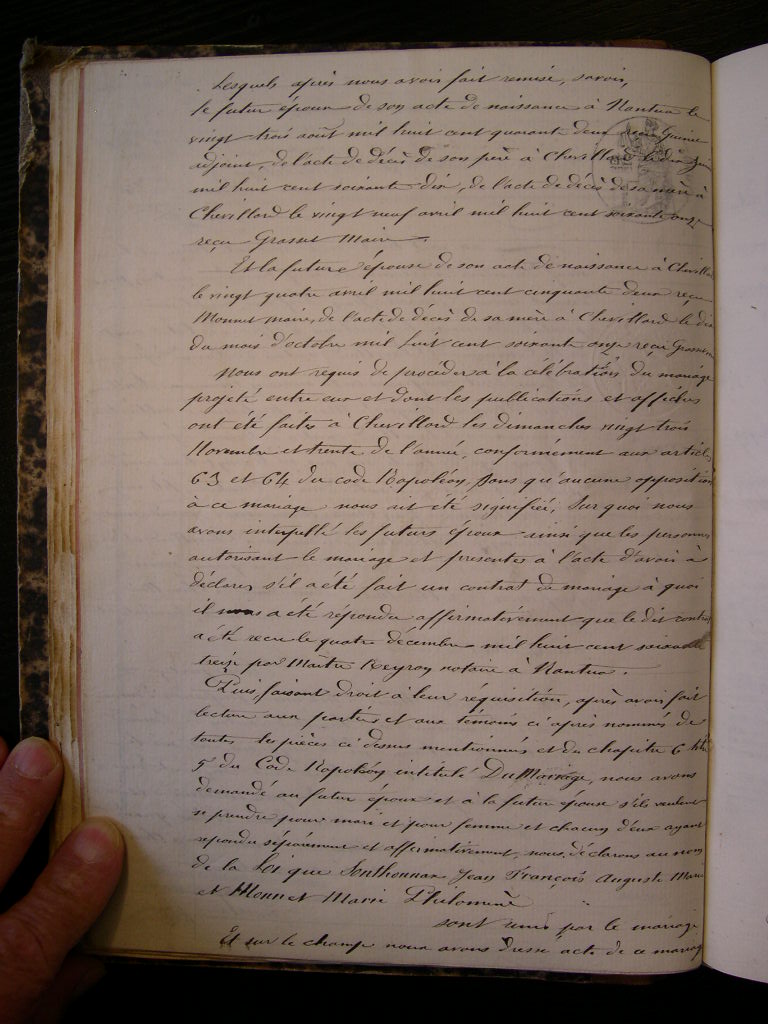 Lesquels après nous avoir fait remise, savoir,
le futur époux de son acte de naissance à Nantua le
vingt trois août mil huit cent quarante deux reçu Guinet
adjoint, de l'acte de décès de son père à Chevillard le dix juin
mil huit cent soixante dix, de l'acte de décès de sa mère à
Chevillard le vingt neuf avril mil huit cent soixante onze
reçu Grasset Maire.
Et la future épouse de son acte de naissance à Chevillard
le vingt quatre avril mil huit cent cinquante deux reçu
Monnet maire, de l'acte de décès de sa mère à Chevillard le dix
du mois d'octobre mil huit cent soixante onze reçu Grasset
Nous ont requis de procéder à la célébration du mariage
projeté entre eux et dont les publications et affiches
ont été faites à Chevillard les dimanches vingt trois
Novembre et trente de l'année, conformément aux articles
63 et 64 du code Napoléon, sans qu'aucune opposition
à ce mariage nous ait été signifiée, Sur quoi nous
avons interpellé les futurs époux ainsi que les personnes
autorisant le mariage et présentes à l'acte d'avoir à
déclarer s'il a été fait un contrat de mariage à quoi
il nous a été répondu affirmativement que le dit contrat
a été reçu le quatre décembre mil huit cent soixante
treize par Maître Reyroy notaire à Nantua.
Puis faisant droit à leur réquisition, après avoir fait
lecture aux parties et aux temoins ci après nommés de
toutes les pièces ci dessus mentionnées et du chapitre 6 titre
5 du Code Napoléon intitulé Du Mariage, nous avons
demandé au futur époux et à la future épouse s'ils veulent
se prendre pour mari et pour femme et chacun d'eux ayant
repondu séparément et affirmativement, nous déclarons au nom
de la Loi que Sonthonnax Jean François Auguste Marie
et Monnet Marie Philomène
sont unis par le mariage
Et sur le champ nous avons dressé acte de ce mariage